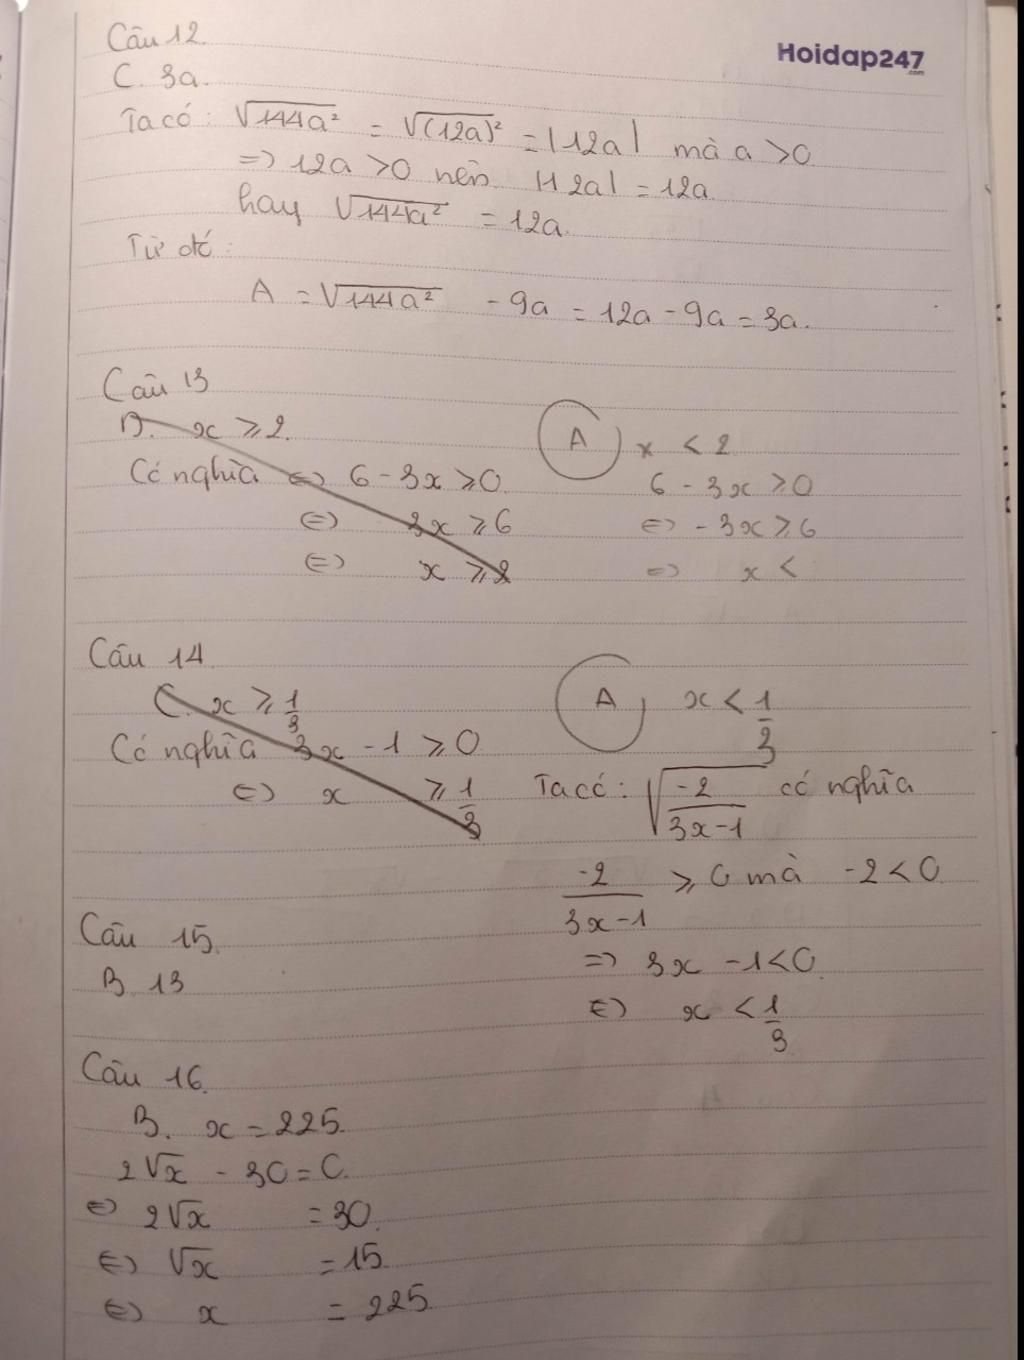 Câu 12.
Hoidap247
.com
C. 3a.
Ta có: √144a² = √(12a)² = |12a| mà a > 0
=> 12a > 0 nên |12a| = 12a.
hay √144a² = 12a.
Từ đó:
A = √144a² - 9a = 12a - 9a = 3a.
Câu 13
B. x ⩾ 2.
Có nghĩa <=> 6 - 3x ⩾ 0.
<=> 3x ⩾ 6
<=> x ⩾ 2
A x < 2
6 - 3x ⩾ 0
<=> -3x ⩾ 6
=> x <
Câu 14.
C. x ⩾ 1/3
Có nghĩa 3x - 1 ⩾ 0
<=> x ⩾ 1/3
A x < 1/3
Ta có: √(-2/(3x-1)) có nghĩa
-2/(3x-1) ⩾ 0 mà -2 < 0
=> 3x - 1 < 0.
<=> x < 1/3
Câu 15.
B 13
Câu 16.
B. x = 225.
2√x - 30 = 0.
<=> 2√x = 30.
<=> √x = 15.
<=> x = 225.